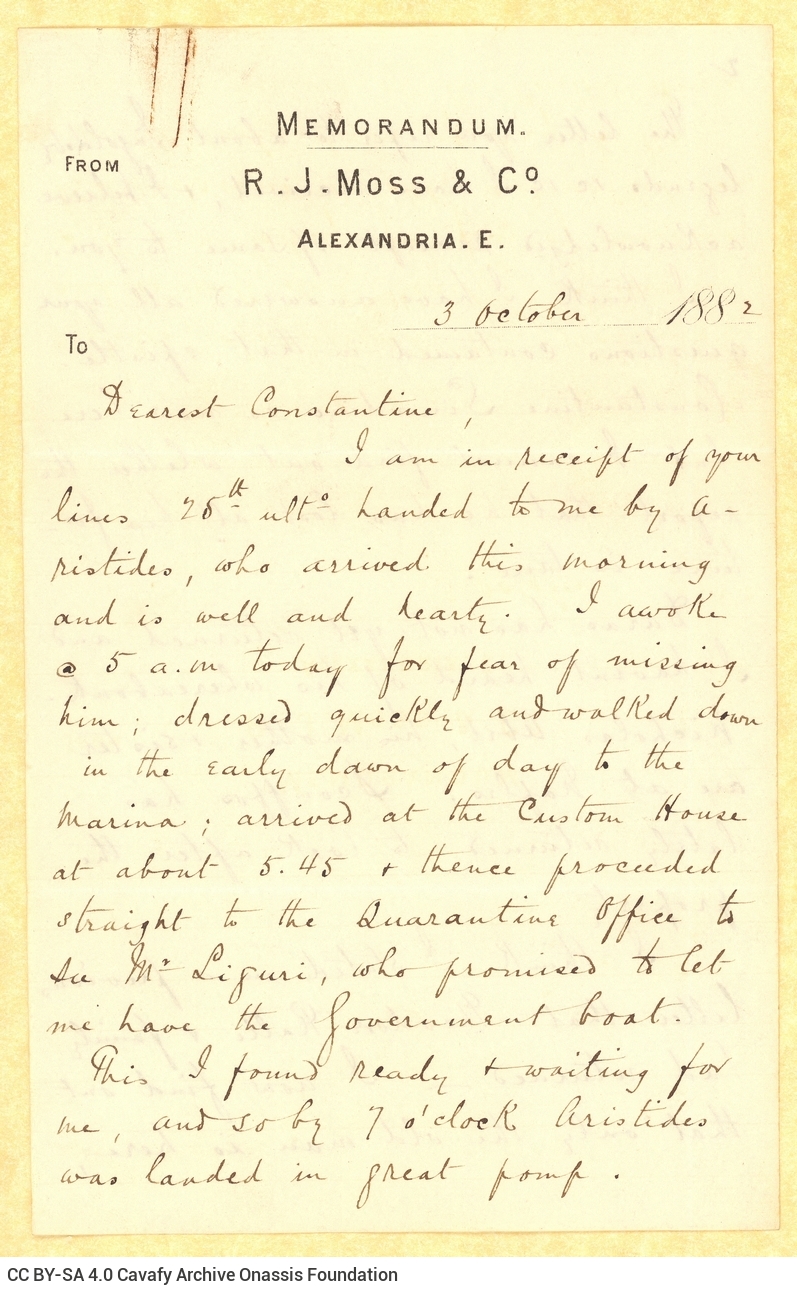 MEMORANDUM.
FROM
R. J. MOSS & Cº
ALEXANDRIA. E.
3 October 1882
To
Dearest Constantine,
I am in receipt of your
lines 25th ultº handed to me by A-
ristides, who arrived this morning
and is well and hearty. I awoke
@ 5 a.m today for fear of missing
him; dressed quickly and walked down
in the early dawn of day to the
Marina; arrived at the Custom House
at about 5.45 & thence proceeded
straight to the Quarantine Office to
see Mr Liguri, who promised to let
me have the Government boat.
This I found ready & waiting for
me, and so by 7 o'clock Aristides
was landed in great pomp.
CC BY-SA 4.0 Cavafy Archive Onassis Foundation